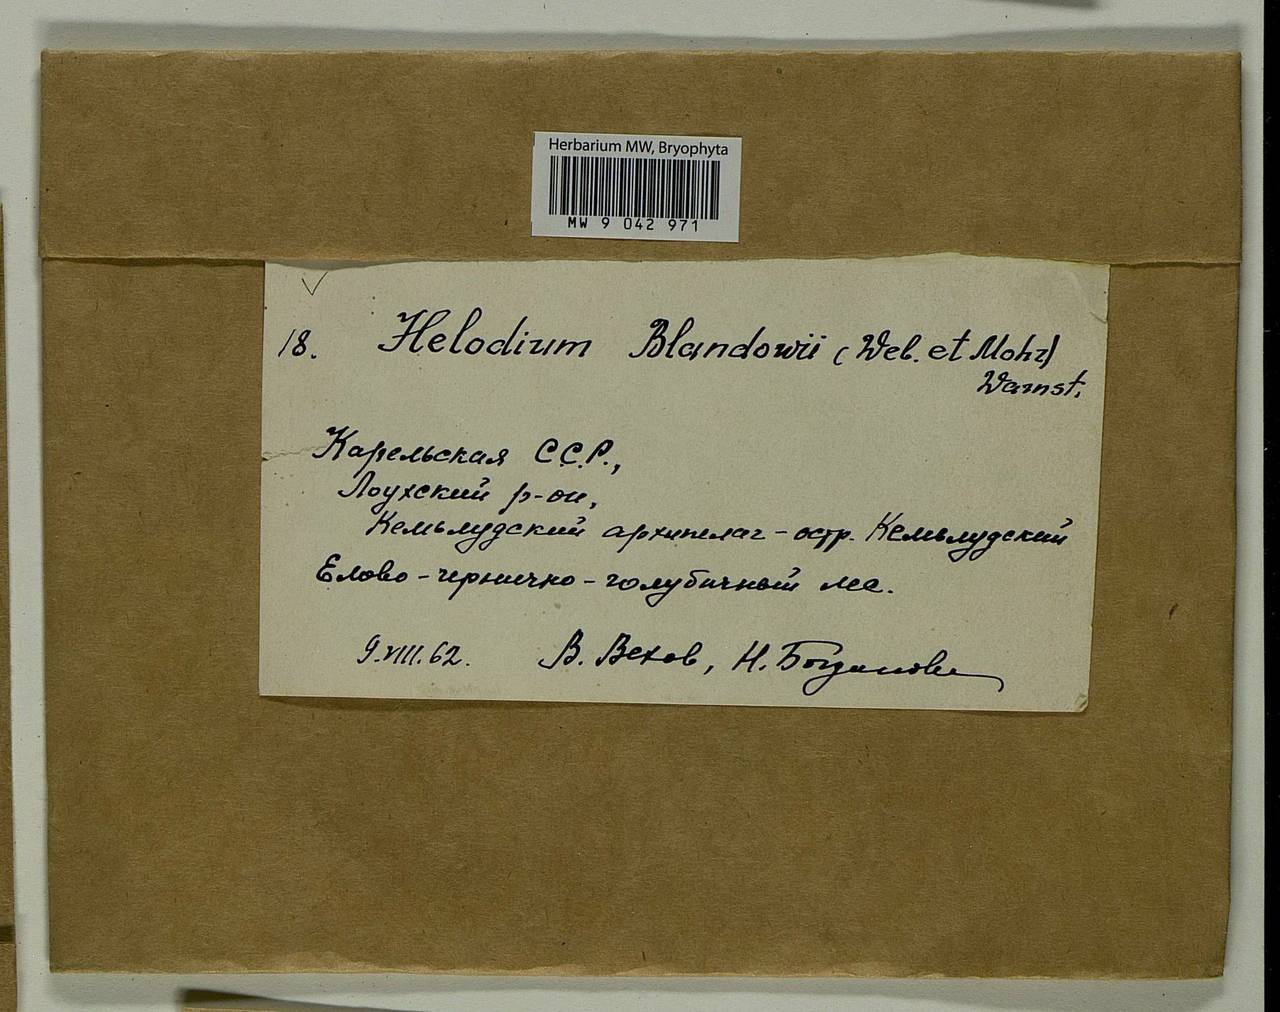 Herbarium MW, Bryophyta
MW 9 042 971
18. Helodium Blandowii (Web. et Mohr)
Warnst.
Карельская С.С.Р.,
Лоухский р-он,
Кемьлудский архипелаг - остр. Кемьлудский
Елово-чернично-голубичный лес.
9.VIII.62. В. Вехов, Н. Богданова